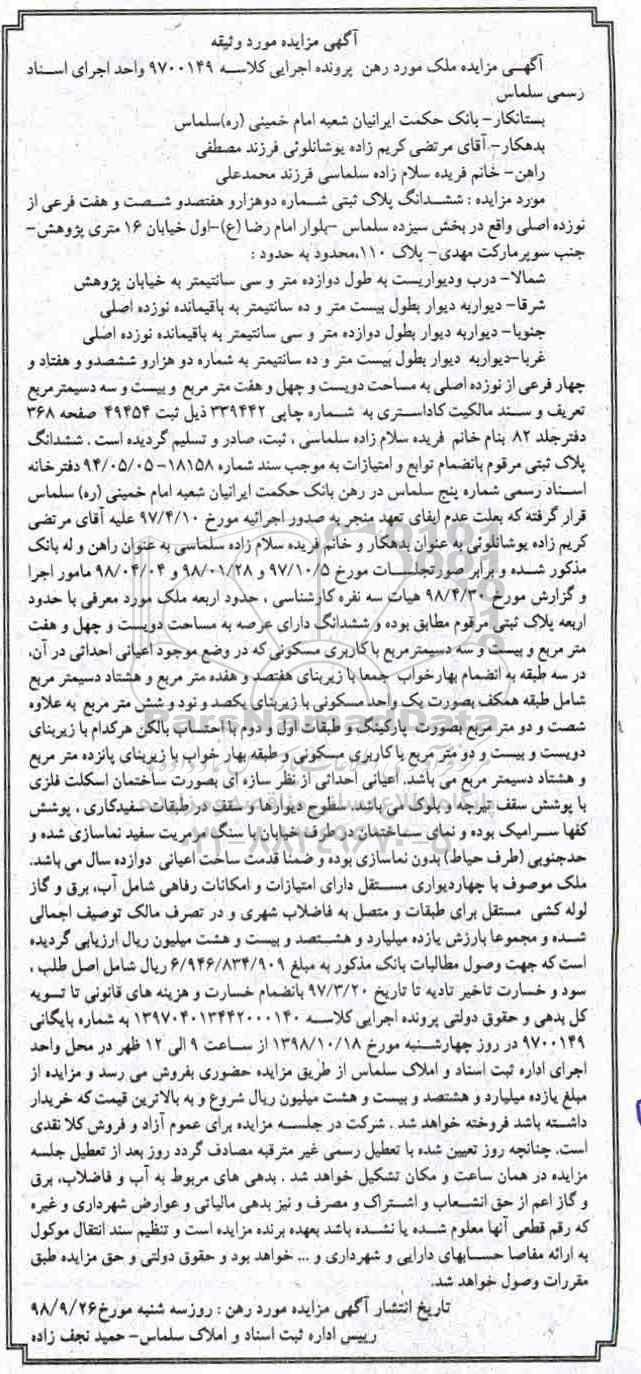 آگهی مزایده مورد وثیقه
آگهـی مزایده ملک مورد رهن پرونده اجرایی کلاسـه ۹۷۰۰۱۴۹ واحد اجرای اسـناد
رسمی سلماس
بستانکار- بانک حکمت ایرانیان شعبه امام خمینی (ره)سلماس
بدهکار- آقای مرتضی کریم زاده یوشانلوئی فرزند مصطفی
راهن- خانم فریده سلام زاده سلماسی فرزند محمدعلی
مورد مزایده : ششـدانگ پلاک ثبتی شـماره دوهزارو هفتصدو شـصت و هفت فرعی از
نوزده اصلی واقع در بخش سیزده سلماس -بلوار امام رضا (ع)-اول خیابان ۱۶ متری پژوهش-
جنب سوپرمارکت مهدی- پلاک ۱۱۰،محدود به حدود :
شمالا- درب ودیواریست به طول دوازده متر و سی سانتیمتر به خیابان پژوهش
شرقا- دیواربه دیوار بطول بیست متر و ده سانتیمتر به باقیمانده نوزده اصلی
جنوبا- دیواربه دیوار بطول دوازده متر و سی سانتیمتر به باقیمانده نوزده اصلی
غربا-دیواربه دیوار بطول بیست متر و ده سانتیمتر به شماره دو هزارو ششصدو و هفتاد و
چهار فرعی از نوزده اصلی به مساحت دویست و چهل و هفت متر مربع و بیست و سه دسیمترمربع
تعریف و سـند مالکیت کاداسـتری به شـماره چاپی ۳۳۹۴۴۲ ذیل ثبت ۴۹۴۵۴ صفحه ۳۶۸
دفترجلد ۸۲ بنام خانم فریده سلام زاده سلماسی ، ثبت، صادر و تسلیم گردیده است . ششدانگ
پلاک ثبتی مرقوم بانضمام توابع و امتیازات به موجب سند شماره ۱۸۱۵۸- ۹۴/۰۵/۰۵ دفترخانه
اسـناد رسمی شماره پنج سلماس در رهن بانک حکمت ایرانیان شعبه امام خمینی (ره) سلماس
قرار گرفته که بعلت عدم ایفای تعهد منجر به صدور اجرائیه مورخ ۹۷/۴/۱۰ علیه آقای مرتضی
کریم زاده یوشانلوئی به عنوان بدهکار و خانم فریده سلام زاده سلماسی به عنوان راهن و له بانک
مذکور شـده و برابر صورتجلسـات مورخ ۹۷/۱۰/۵ و ۹۸/۰۱/۲۸ و ۹۸/۰۴/۰۴ مامور اجرا
و گزارش مورخ ۹۸/۴/۳۰ هیات سه نفره کارشناسی ، حدود اربعه ملک مورد معرفی با حدود
اربعه پلاک ثبتی مرقوم مطابق بوده و ششدانگ دارای عرصه به مساحت دویست و چهل و هفت
متر مربع و بیست و سه دسیمترمربع با کاربری مسکونی که در وضع موجود اعیانی احداثی در آن،
در سه طبقه به انضمام بهارخواب جمعا با زیربنای هفتصد و هفده متر مربع و هشتاد دسیمتر مربع
شامل طبقه همکف بصورت یک واحد مسکونی با زیربنای یکصد و نود و شش متر مربع به علاوه
شصت و دو متر مربع بصورت پارکینگ و طبقات اول و دوم با احتساب بالکن هرکدام با زیربنای
دویست و بیست و دو متر مربع با کاربری مسکونی و طبقه بهار خواب با زیربنای پانزده متر مربع
و هشتاد دسیمتر مربع می باشد. اعیانی احداثی از نظر سازه ای بصورت ساختمان اسکلت فلزی
با پوشش سقف تیرچه و بلوک می باشد. سطوح دیوارها و سقف در طبقات سفیدکاری ، پوشش
کفها سـرامیک بوده و نمای سـاختمان در طرف خیابان با سنگ مرمریت سفید نماسازی شده و
حدجنوبی (طرف حیاط) بدون نماسازی بوده و ضمنا قدمت ساخت اعیانی دوازده سال می باشد.
ملک موصوف با چهاردیواری مسـتقل دارای امتیازات و امکانات رفاهی شامل آب، برق و گاز
لوله کشی مستقل برای طبقات و متصل به فاضلاب شهری و در تصرف مالک توصیف اجمالی
شـده و مجموعا بارزش یازده میلیارد و هشـتصد و بیست و هشت میلیون ریال ارزیابی گردیده
است که جهت وصول مطالبات بانک مذکور به مبلغ ۶/۹۴۶/۸۳۴/۹۰۹ ریال شامل اصل طلب ،
سود و خسارت تاخیر تادیه تا تاریخ ۹۷/۳/۲۰ بانضمام خسارت و هزینه های قانونی تا تسویه
کل بدهی و حقوق دولتی پرونده اجرایی کلاسـه ۱۳۹۷۰۴۰۱۳۴۴۲۰۰۰۱۴۰ به شماره بایگانی
۹۷۰۰۱۴۹ در روز چهارشـنبه مورخ ۱۳۹۸/۱۰/۱۸ از سـاعت ۹ الی ۱۲ ظهر در محل واحد
اجرای اداره ثبت اسناد و املاک سلماس از طریق مزایده حضوری بفروش می رسد و مزایده از
مبلغ یازده میلیارد و هشتصد و بیست و هشت میلیون ریال شروع و به بالاترین قیمت که خریدار
داشـته باشد فروخته خواهد شد . شرکت در جلسـه مزایده برای عموم آزاد و فروش کلا نقدی
است. چنانچه روز تعیین شده با تعطیل رسمی غیر مترقبه مصادف گردد روز بعد از تعطیل جلسه
مزایده در همان ساعت و مکان تشکیل خواهد شد . بدهی های مربوط به آب و فاضلاب، برق
و گاز اعم از حق انشـعاب و اشـتراک و مصرف و نیز بدهی مالیاتی و عوارض شهرداری و غیره
که رقم قطعی آنها معلوم شـده یا نشـده باشد بعهده برنده مزایده است و تنظیم سند انتقال موکول
به ارائه مفاصا حسـابهای دارایی و شهرداری و ... خواهد بود و حقوق دولتی و حق مزایده طبق
مقررات وصول خواهد شد.
تاریخ انتشار آگهی مزایده مورد رهن : روزسه شنبه مورخ۹۸/۹/۲۶
رییس اداره ثبت اسناد و املاک سلماس- حمید نجف زاده
ParsNamadData
۰۲۱-۸۸۳۴۹۶۷۰-۵